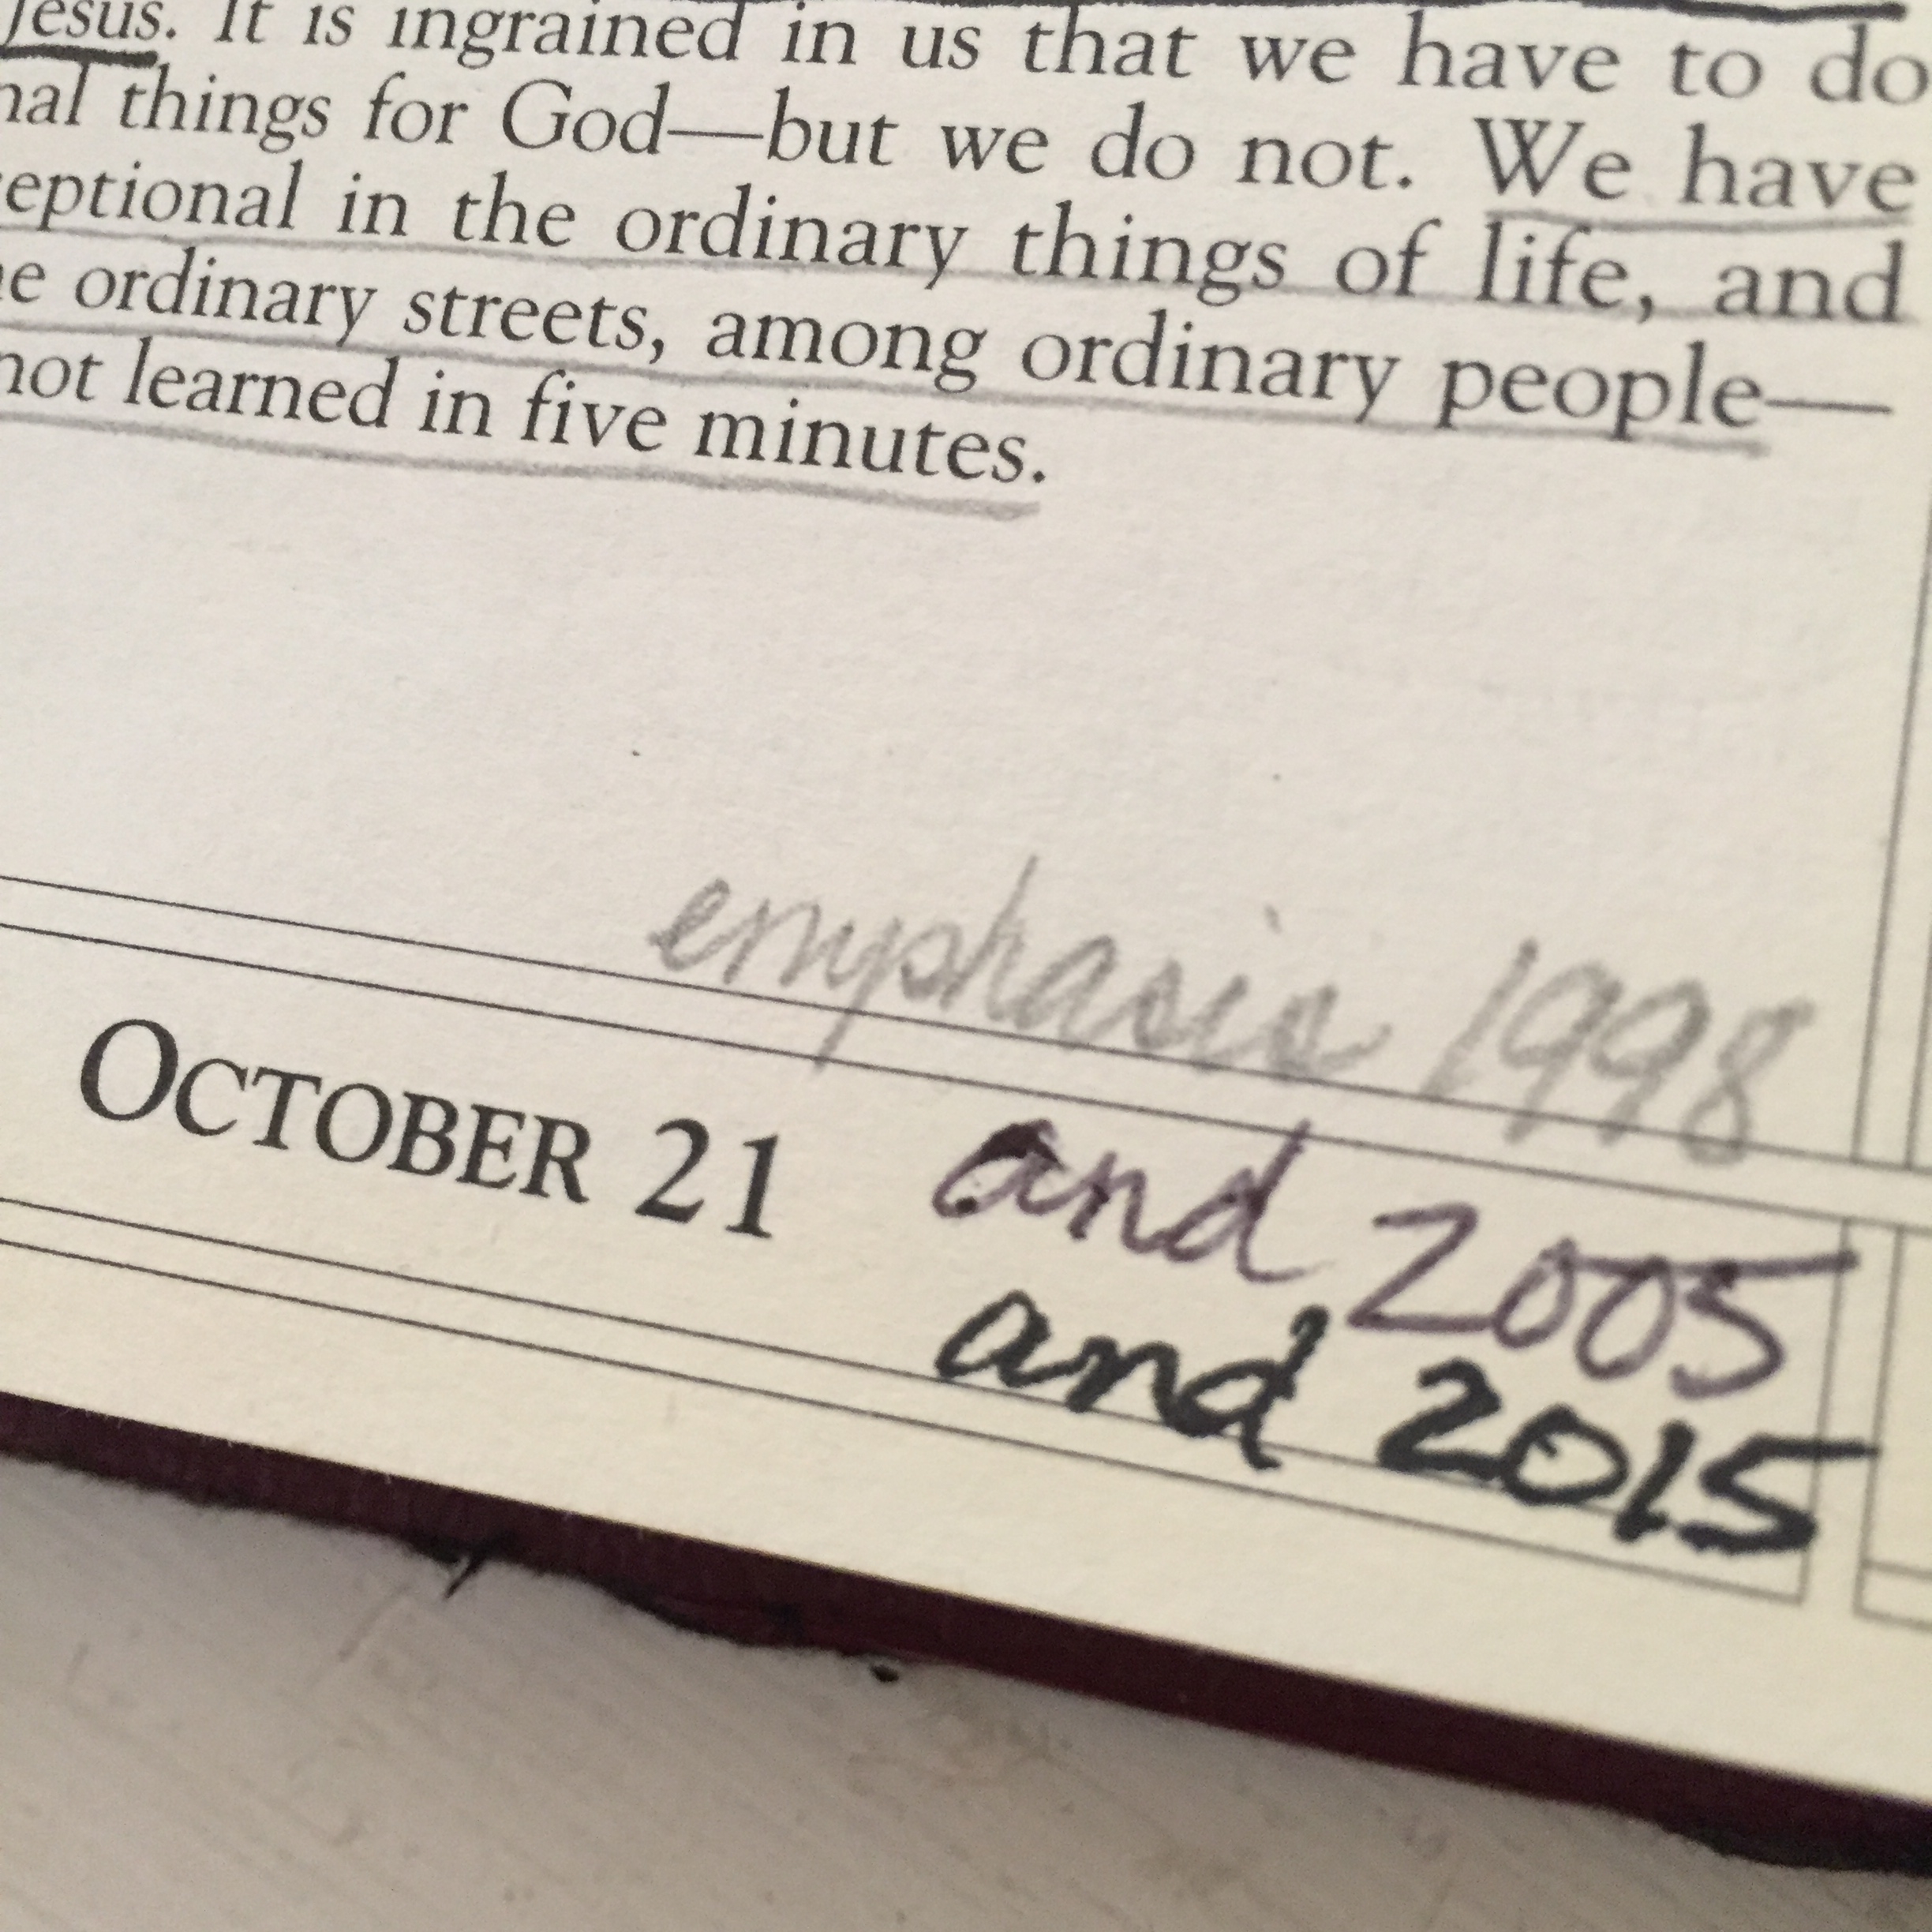 Jesus. It is ingrained in us that we have to do
nal things for God—but we do not. We have
eptional in the ordinary things of life, and
e ordinary streets, among ordinary people—
not learned in five minutes.
emphasis 1998
OCTOBER 21 and 2005
and 2015